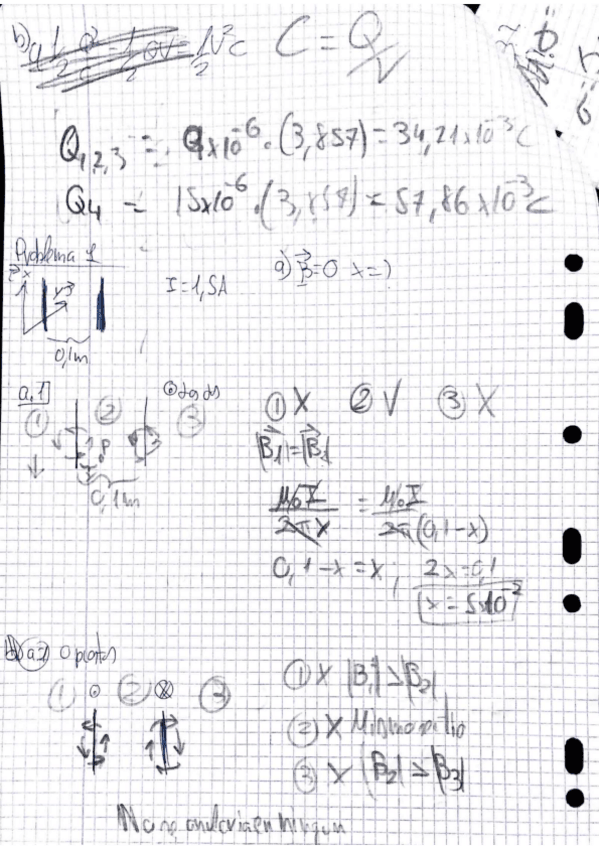 b) 4 1/2 Q²/C = 1/2 QV = 1/2 V²C C = Q/V
Q1,2,3 = 9x10^-6 · (3,857) = 34,21x10^-3 C
Q4 = 15x10^-6 · (3,857) = 57,86x10^-3 C
Problema 1
I = 1,5A a) B⃗ = 0 x = ?
0,1m
a.1)
① ② ③ ① X ② V ③ X
|B⃗1| = |B⃗2|
P
0,1m
μ0 I / 2π x = μ0 I / 2π (0,1-x)
0,1-x = x ; 2x = 0,1
x = 5x10^-2
a.2) Opuestos
① ② ③
① X |B1| > |B2|
② X Mismo sentido
③ X |B2| > |B3|
No se anularía en ningún